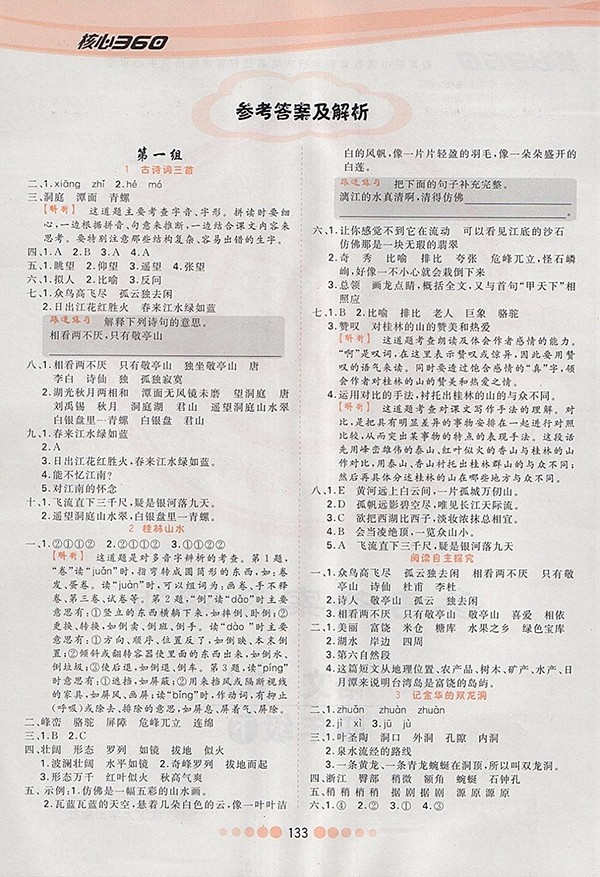 核心360
参考答案及解析
第一组
1 古诗词三首
二、1.xiāng zhǐ 2.hé mó
三、洞庭 潭面 青螺
【解析】 这道题主要考查字音、字形。拼读时要细
心,一边根据拼音、句意来推断,一边结合课文内容来
思考。要特别注意那些结构复杂、容易出错的生字。
四、1.A 2.B 3.A 4.A
五、1.眺望 2.仰望 3.遥望 4.张望
六、1.拟人 2.比喻 3.反问
七、1.众鸟高飞尽 孤云独去闲
2.日出江花红胜火 春来江水绿如蓝
跟进练习 解释下列诗句的意思。
相看两不厌,只有敬亭山
八、1.相看两不厌 只有敬亭山 独坐敬亭山 唐
李白 诗仙 独 孤独寂寞
2.湖光秋月两相和 潭面无风镜未磨 望洞庭 唐
刘禹锡 秋月 洞庭湖 君山 遥望洞庭山水翠
白银盘里一青螺 白银盘里一青螺
九、1.春来江水绿如蓝
2.A
3.日出江花红胜火,春来江水绿如蓝。
4.能不忆江南?
5.对江南的怀念
十、1.飞流直下三千尺,疑是银河落九天。
2.遥望洞庭山水翠,白银盘里一青螺。
2 桂林山水
一、1.②①①② 2.①②①② 3.①②①②
【解析】 这道题是对多音字辨析的考查。第1题,
“卷”读“juǎn”时,指弯转成圆筒形的东西,如:卷
发、蛋卷。读“juàn”时,可以组词为:画卷、手不释
卷、卷宗、试卷等。第2题,“倒”读“dǎo”时主要
意思有:①竖立的东西横躺下来,如摔倒、卧倒;②更
换、转换,如倒卖、倒班、倒手。读“dào”时主要意
思有:①方向、顺序、位置反了,如倒映、本末倒
置;②倾斜或翻转容器使里面的东西出来,如倒水、
倒垃圾;③使后退,如倒退、倒车。第3题,读“píng”
时意思有:①遮挡,如屏蔽;②用来挡风或隔断视线
的家具,如屏风、画屏;读“bǐng”时,作动词,有抑止
(呼吸)或除去、放弃的意思,如屏息、屏着气、屏除。
二、峰峦 骆驼 屏障 危峰兀立 连绵
四、1.壮阔 形态 罗列 如镜 拔地 似火
2.波澜壮阔 水平如镜 2.奇峰罗列 拔地而起
3.形态万千 红叶似火 秋高气爽
五、示例:1.仿佛是一幅五彩的山水画。
2.瓦蓝瓦蓝的天空,悬着几朵白色的云,像一叶叶洁
白的风帆,像一片片轻盈的羽毛,像一朵朵盛开的
白莲。
跟进练习 把下面的句子补充完整。
漓江的水真清啊,清得仿佛
。
六、1.让你感觉不到它在流动 可以看见江底的沙石
仿佛那是一块无瑕的翡翠
2.奇 秀 比喻 排比 夸张 危峰兀立,怪石嶙
峋,好像一不小心就会栽倒下来
3.总领 画龙点睛,概括全文,又与首句“甲天下”相
照应
七、1.B 2.比喻 排比 老人 巨象 骆驼
3.赞叹 对桂林的山的赞美和热爱
【解析】 这道题考查朗读及体会作者感情的能力。
“啊”是叹词,在这里表示赞叹或惊异,因此要用赞
叹的语气来读。同时要透过饱含感情的“真”字,领
会作者对桂林的山的赞美和热爱之情。
4.运用对比的手法,衬托出桂林的山的与众不同。
【解析】 这道题考查对课文写作手法的理解。对
比,是把具有明显差异的事物安排在一起进行对照
比较,从而突出某事物的特点的表现手法。这段话
先用峰峦雄伟的泰山、红叶似火的香山与桂林的山
作对比,用泰山、香山衬托出桂林群山的与众不同;
然后再具体分述桂林的山在哪些方面与众不同。
八、1.E 黄河远上白云间,一片孤城万仞山。
2.D 孤帆远影碧空尽,唯见长江天际流。
3.C 欲把西湖比西子,淡妆浓抹总相宜。
4.B 会当凌绝顶,一览众山小。
5.A 飞流直下三千尺,疑是银河落九天
阅读自主探究
一、1.众鸟高飞尽 孤云独去闲 相看两不厌 只有
敬亭山 诗仙 杜甫 李杜
2.诗人 敬亭山 孤云独去闲
3.相看两不厌 只有敬亭山 喜爱 相依
二、1.美丽 富饶 米仓 糖库 水果之乡 绿色宝库
2.湖水 岸边 四周
3.第六自然段
4.这篇短文从地理位置、农产品、树木、矿产、水产、日
月潭来说明台湾岛是富饶的岛屿。
3 记金华的双龙洞
一、1.zhuǎn zhuàn zhuàn
2.jì xì 3.jū jù
二、1.叶圣陶 洞口 外洞 孔隙 内洞
2.泉水流经的路线
3.一条黄龙、一条青龙蜿蜒在洞顶,所以叫双龙洞。
四、浙江 臀部 稍微 额角 蜿蜒 石钟孔
五、1.稍稍稍稍 据剧据剧 源原源原
六、①.④ 2.② ①.① 4.③
133